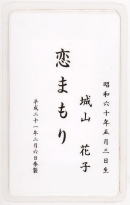 昭和六十年五月三日生
城山 花子
恋まもり
平成二十一年二月六日奉製